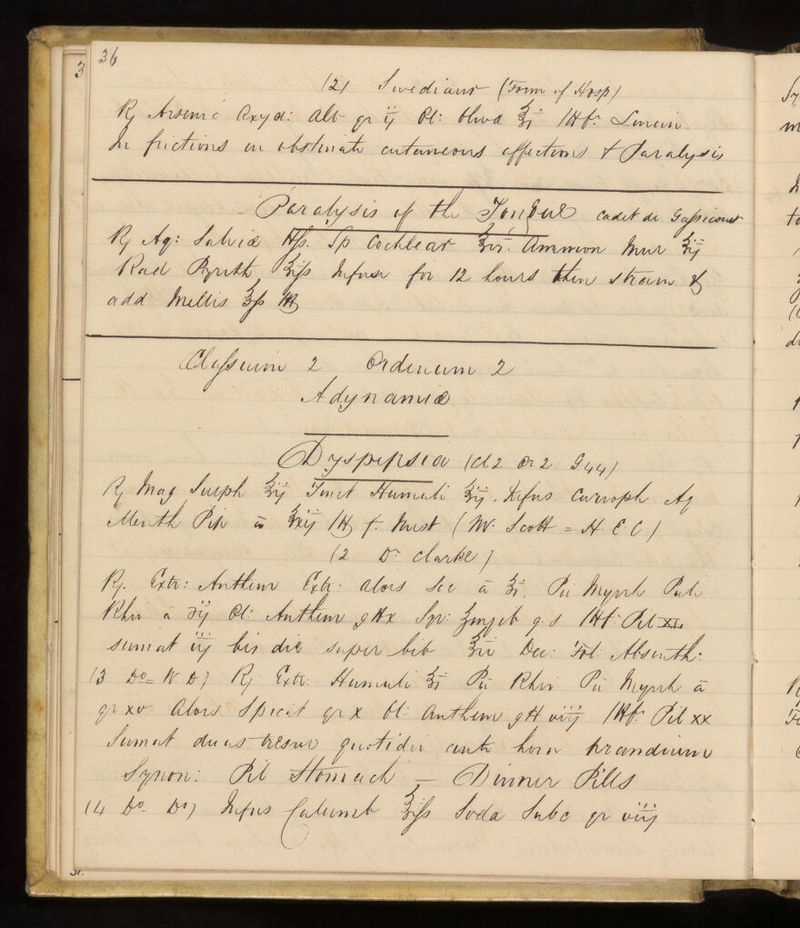 36
(2) Swediaur (Form of Hosp)
℞ Arsenic Oxyd: Alb gr ij Ol: Oliva ℥j M ft Linim
In frictions in obstinate cutaneous affections & Paralysis
Paralysis of the Tongue Cadet de Gassicourt
℞ Aq: Salviæ Sp Cochlear Ammon Mur ʒij
Rad Pyreth ʒiſs Infuse for 12 hours then strain &
add Mellis ℥ſs M
Claſsium 2 Ordinum 2
Adynamiæ
Dyspepsia (Cl 2 Or 2 G 44)
℞ Mag Sulph ʒij Tinct Humuli ʒij. Infus Caryoph Aq
Menth Pip ā M ft Mist (Mr Scott = H E C)
(2 Dr Clarke)
℞. Extr: Anthem Extr: Aloes Soc ā ʒj. Pu Myrrh Pulv
Rhei ā ℈ij Ol: Anthem gtt x Syr: Zingib q.s M ft Pil XL
sumat iij bis die super bib Dec: Fol Absinth:
(3 Do = W. D) ℞ Extr: Humuli ʒj Pu Rhei Pu Myrrh ā
gr xv Aloes Spicat gr x Ol: Anthem gtt viij M ft Pil xx
Sumat duas tresve quotidie ante horn prandium
Synon: Pil Stomach — Dinner Pills
(4 Do Do) Infus Calumb ℥iſs Soda Subc gr viij
3
37.